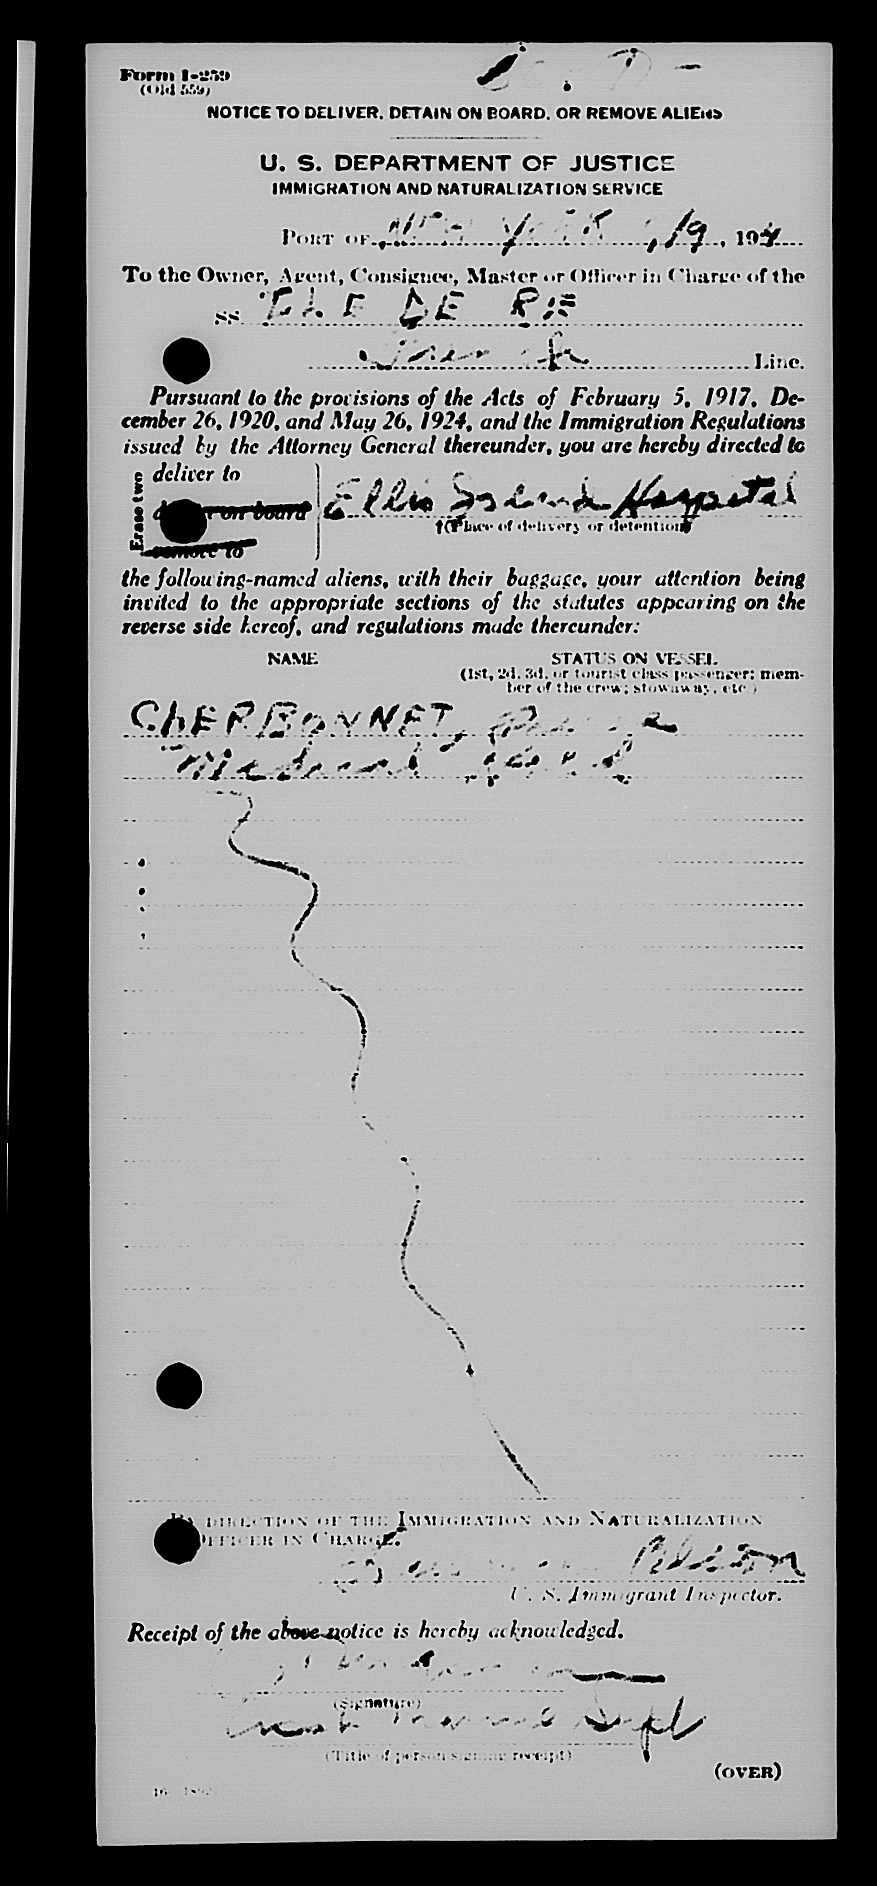 Form I-259
(Old 559)
NOTICE TO DELIVER, DETAIN ON BOARD, OR REMOVE ALIENS
U. S. DEPARTMENT OF JUSTICE
IMMIGRATION AND NATURALIZATION SERVICE
PORT OF NEW YORK 19, 194
To the Owner, Agent, Consignee, Master or Officer in Charge of the
SS. ILE DE
French Line.
Pursuant to the provisions of the Acts of February 5, 1917, De-
cember 26, 1920, and May 26, 1924, and the Immigration Regulations
issued by the Attorney General thereunder, you are hereby directed to
Erase two
deliver to
on board
remove to
Ellis Island Hospital
(Place of delivery or detention)
the following-named aliens, with their baggage, your attention being
invited to the appropriate sections of the statutes appearing on the
reverse side hereof, and regulations made thereunder:
NAME STATUS ON VESSEL
(1st, 2d, 3d, or tourist class passenger; mem-
ber of the crew; stowaway, etc.)
CHERBONNET,
Medical
BY DIRECTION OF THE IMMIGRATION AND NATURALIZATION
OFFICER IN CHARGE.
U. S. Immigrant Inspector.
Receipt of the above notice is hereby acknowledged.
(Signature)
Dept
(Title of person signing receipt)
(OVER)